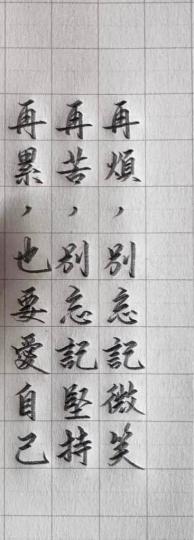 再煩，別忘記微笑
再苦，別忘記堅持
再累，也要愛自己